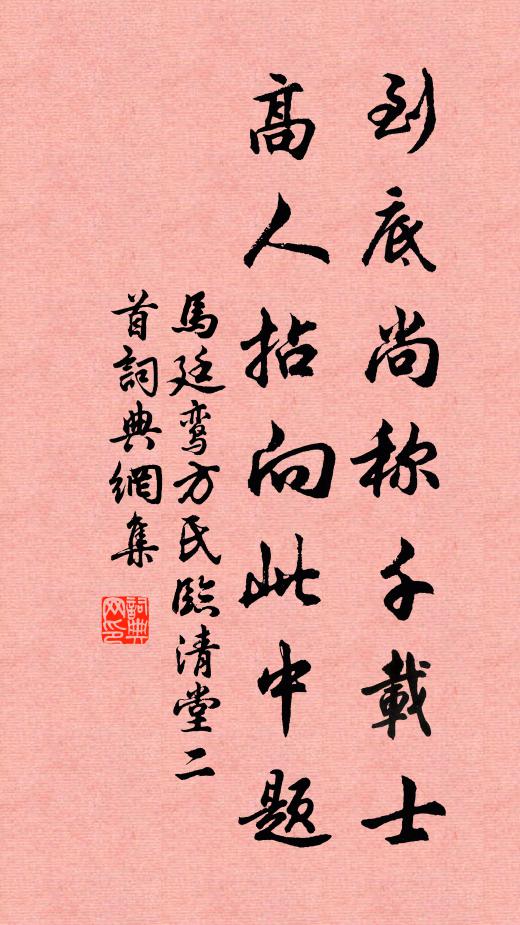 到底尚称千載士
高人拈向此中題
馬廷鸞方氏臨清堂二
首詞典網集
詞典
网印